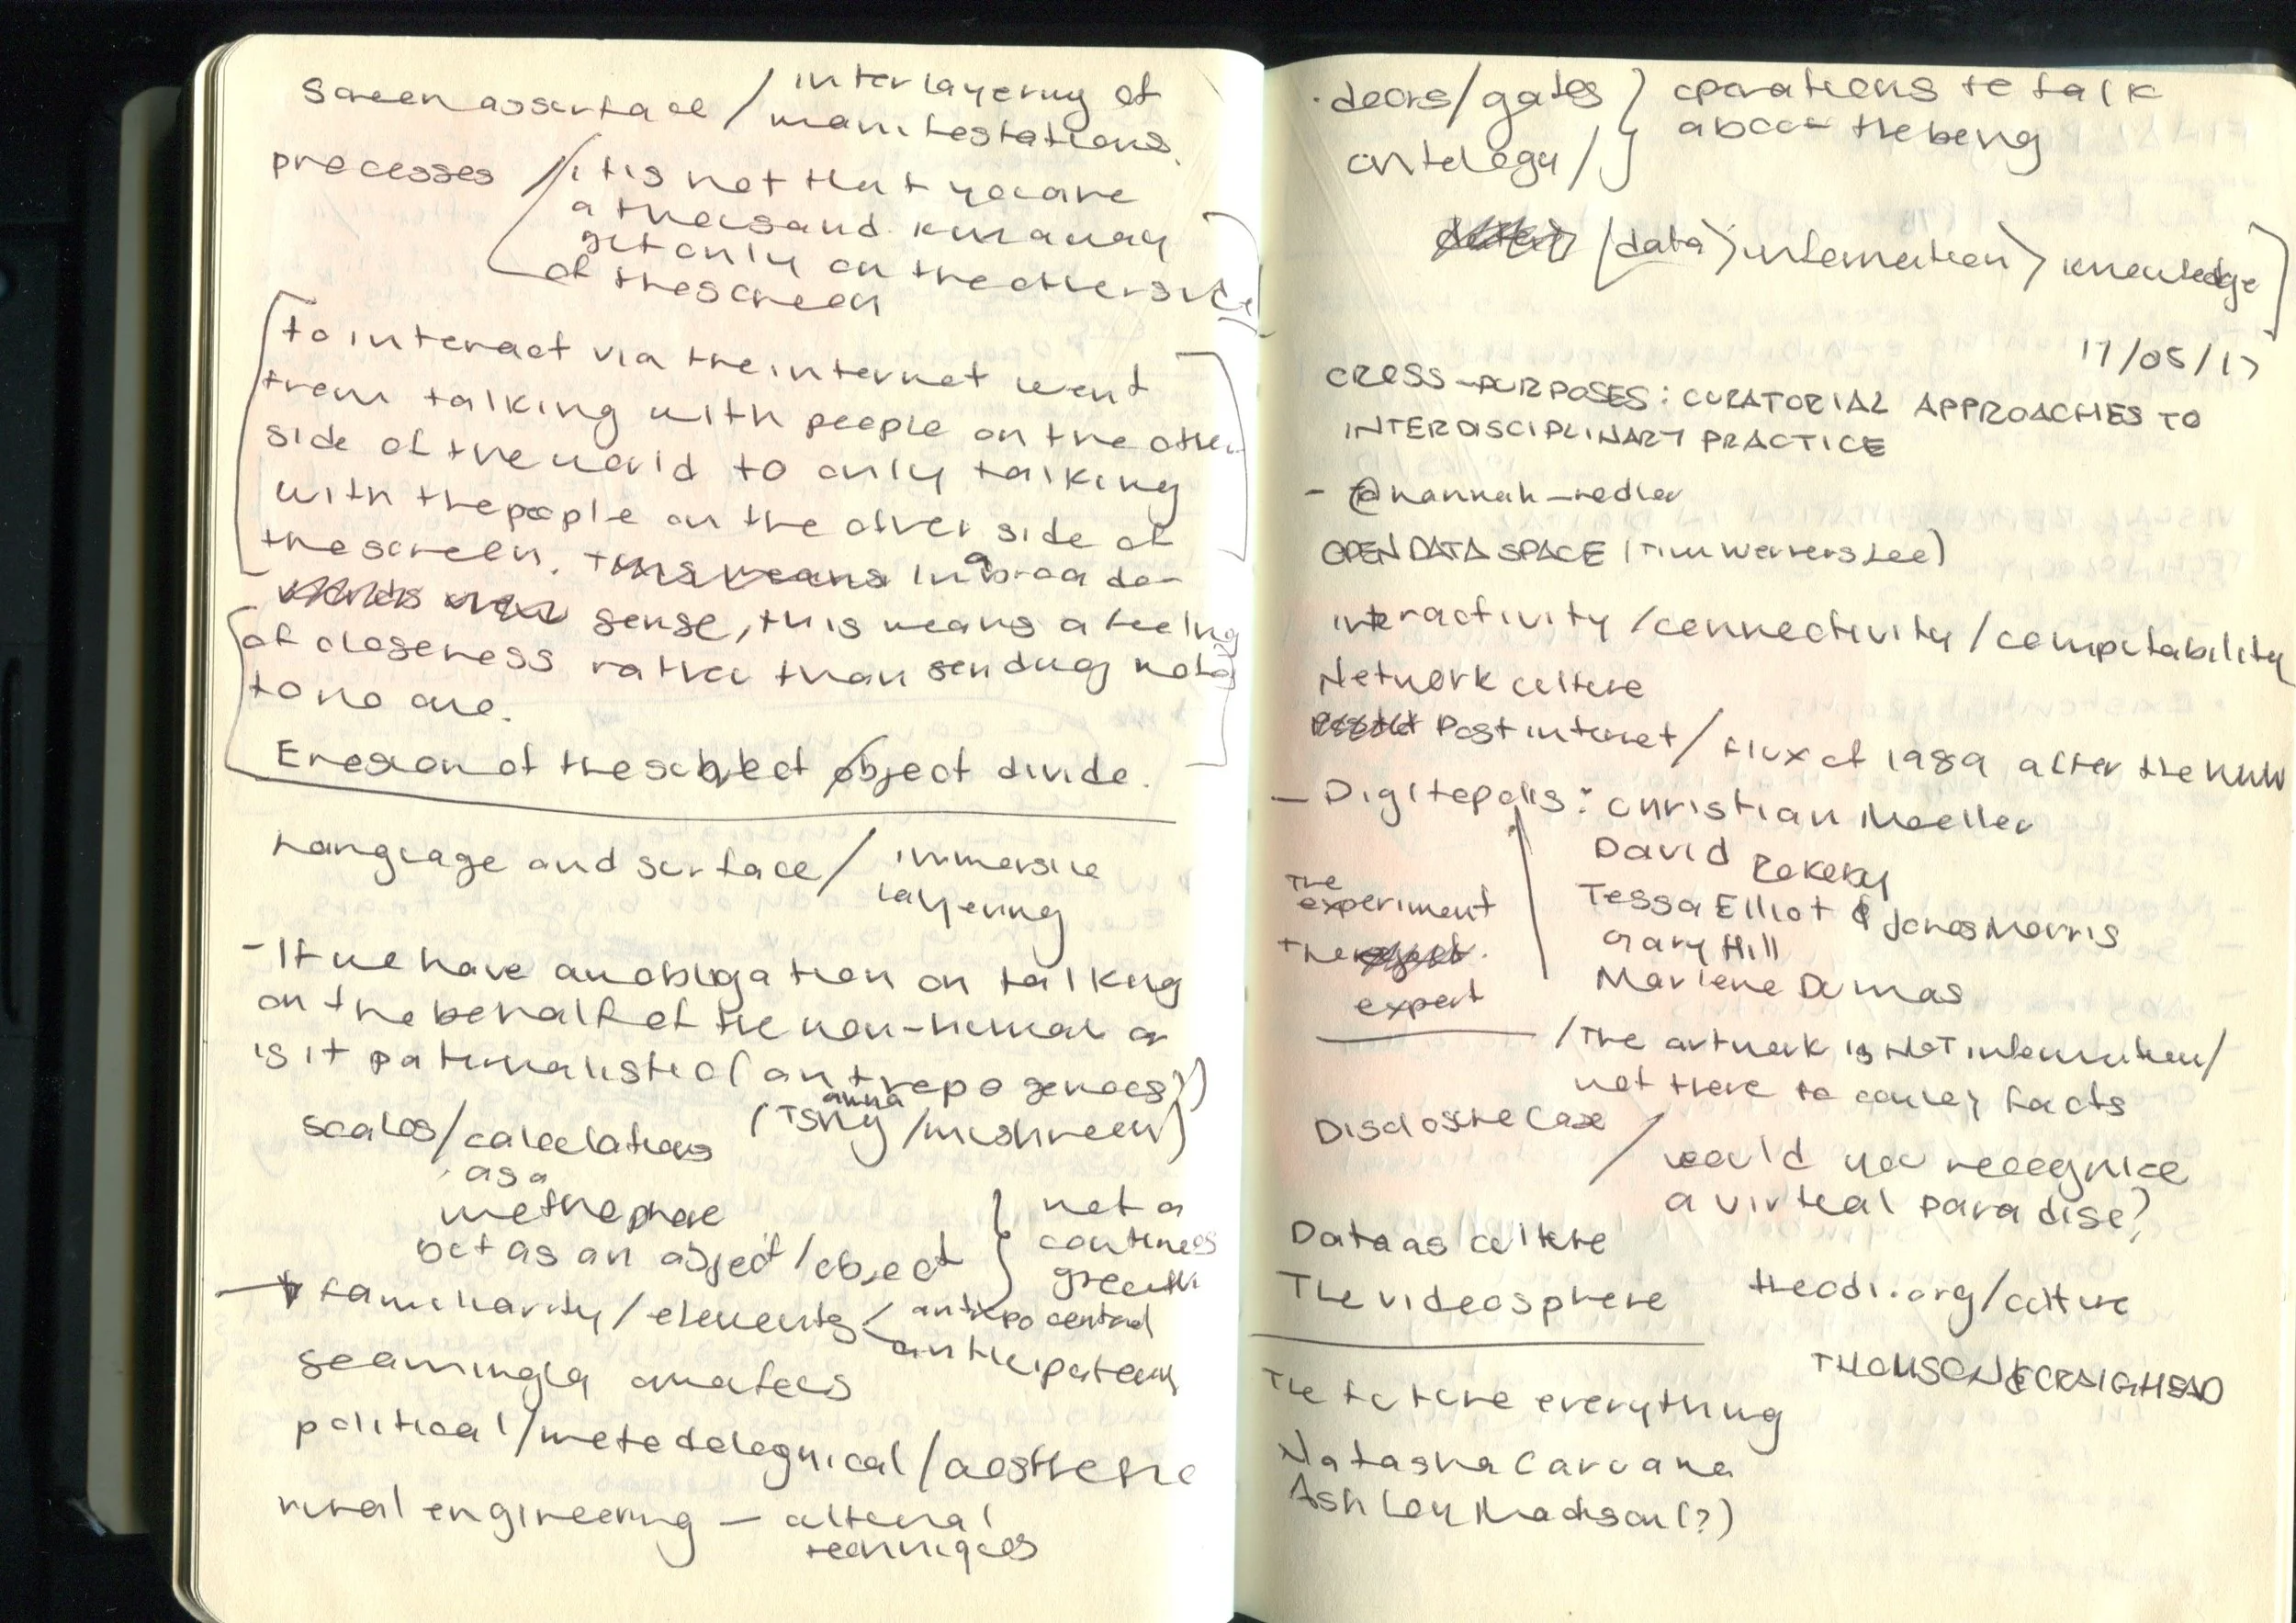 Screen as surface / interlayering of
manifestations.
processes / it is not that you are
a thousand km away
yet only on the other side
of the screen
to interact via the internet went
from talking with people on the other
side of the world to only talking
with the people on the other side of
the screen. this means In a broader
sense, this means a feeling
of closeness rather than sending
to no one.
Erosion of the subject object divide.
Language and surface / immersive
layering
- If we have an obligation on talking
on the behalf of the non-human or
is it paternalistic (antropogenoes?)
scales/calculations (anna TSing/mushroom)
as a
but as an abject/object } not a
continuous
growth
→ familiarity / elements < antropocentral
anticipateury
seamingly amateus
political/metodelogical/aesthetic
rural engineering — cultural
techniques
· doors/gates } operations to talk
about the being
ontology /
(data > information > knowledge]
17/05/17
CROSS-PURPOSES: CURATORIAL APPROACHES TO
INTERDISCIPLINARY PRACTICE
- @hannah_redler
OPEN DATA SPACE (Tim Werners Lee)
interactivity / connectivity / computability
Network culture
Post internet / flux of 1989 after the WWW
- Digitopolis: Christian Moeller
David Rokeby
Tessa Elliot & Jones Morris
Gary Hill
Marlene Dumas
the
experiment
the
expert
/ The artwork is NOT information /
not there to convey facts
Disclosure Case / would you recognice
a virtual paradise?
Data as culture
The videosphere theodi.org/culture
THOMSON & CRAIGHEAD
The future everything
Natasha Caruana
Ashley Madison (?)